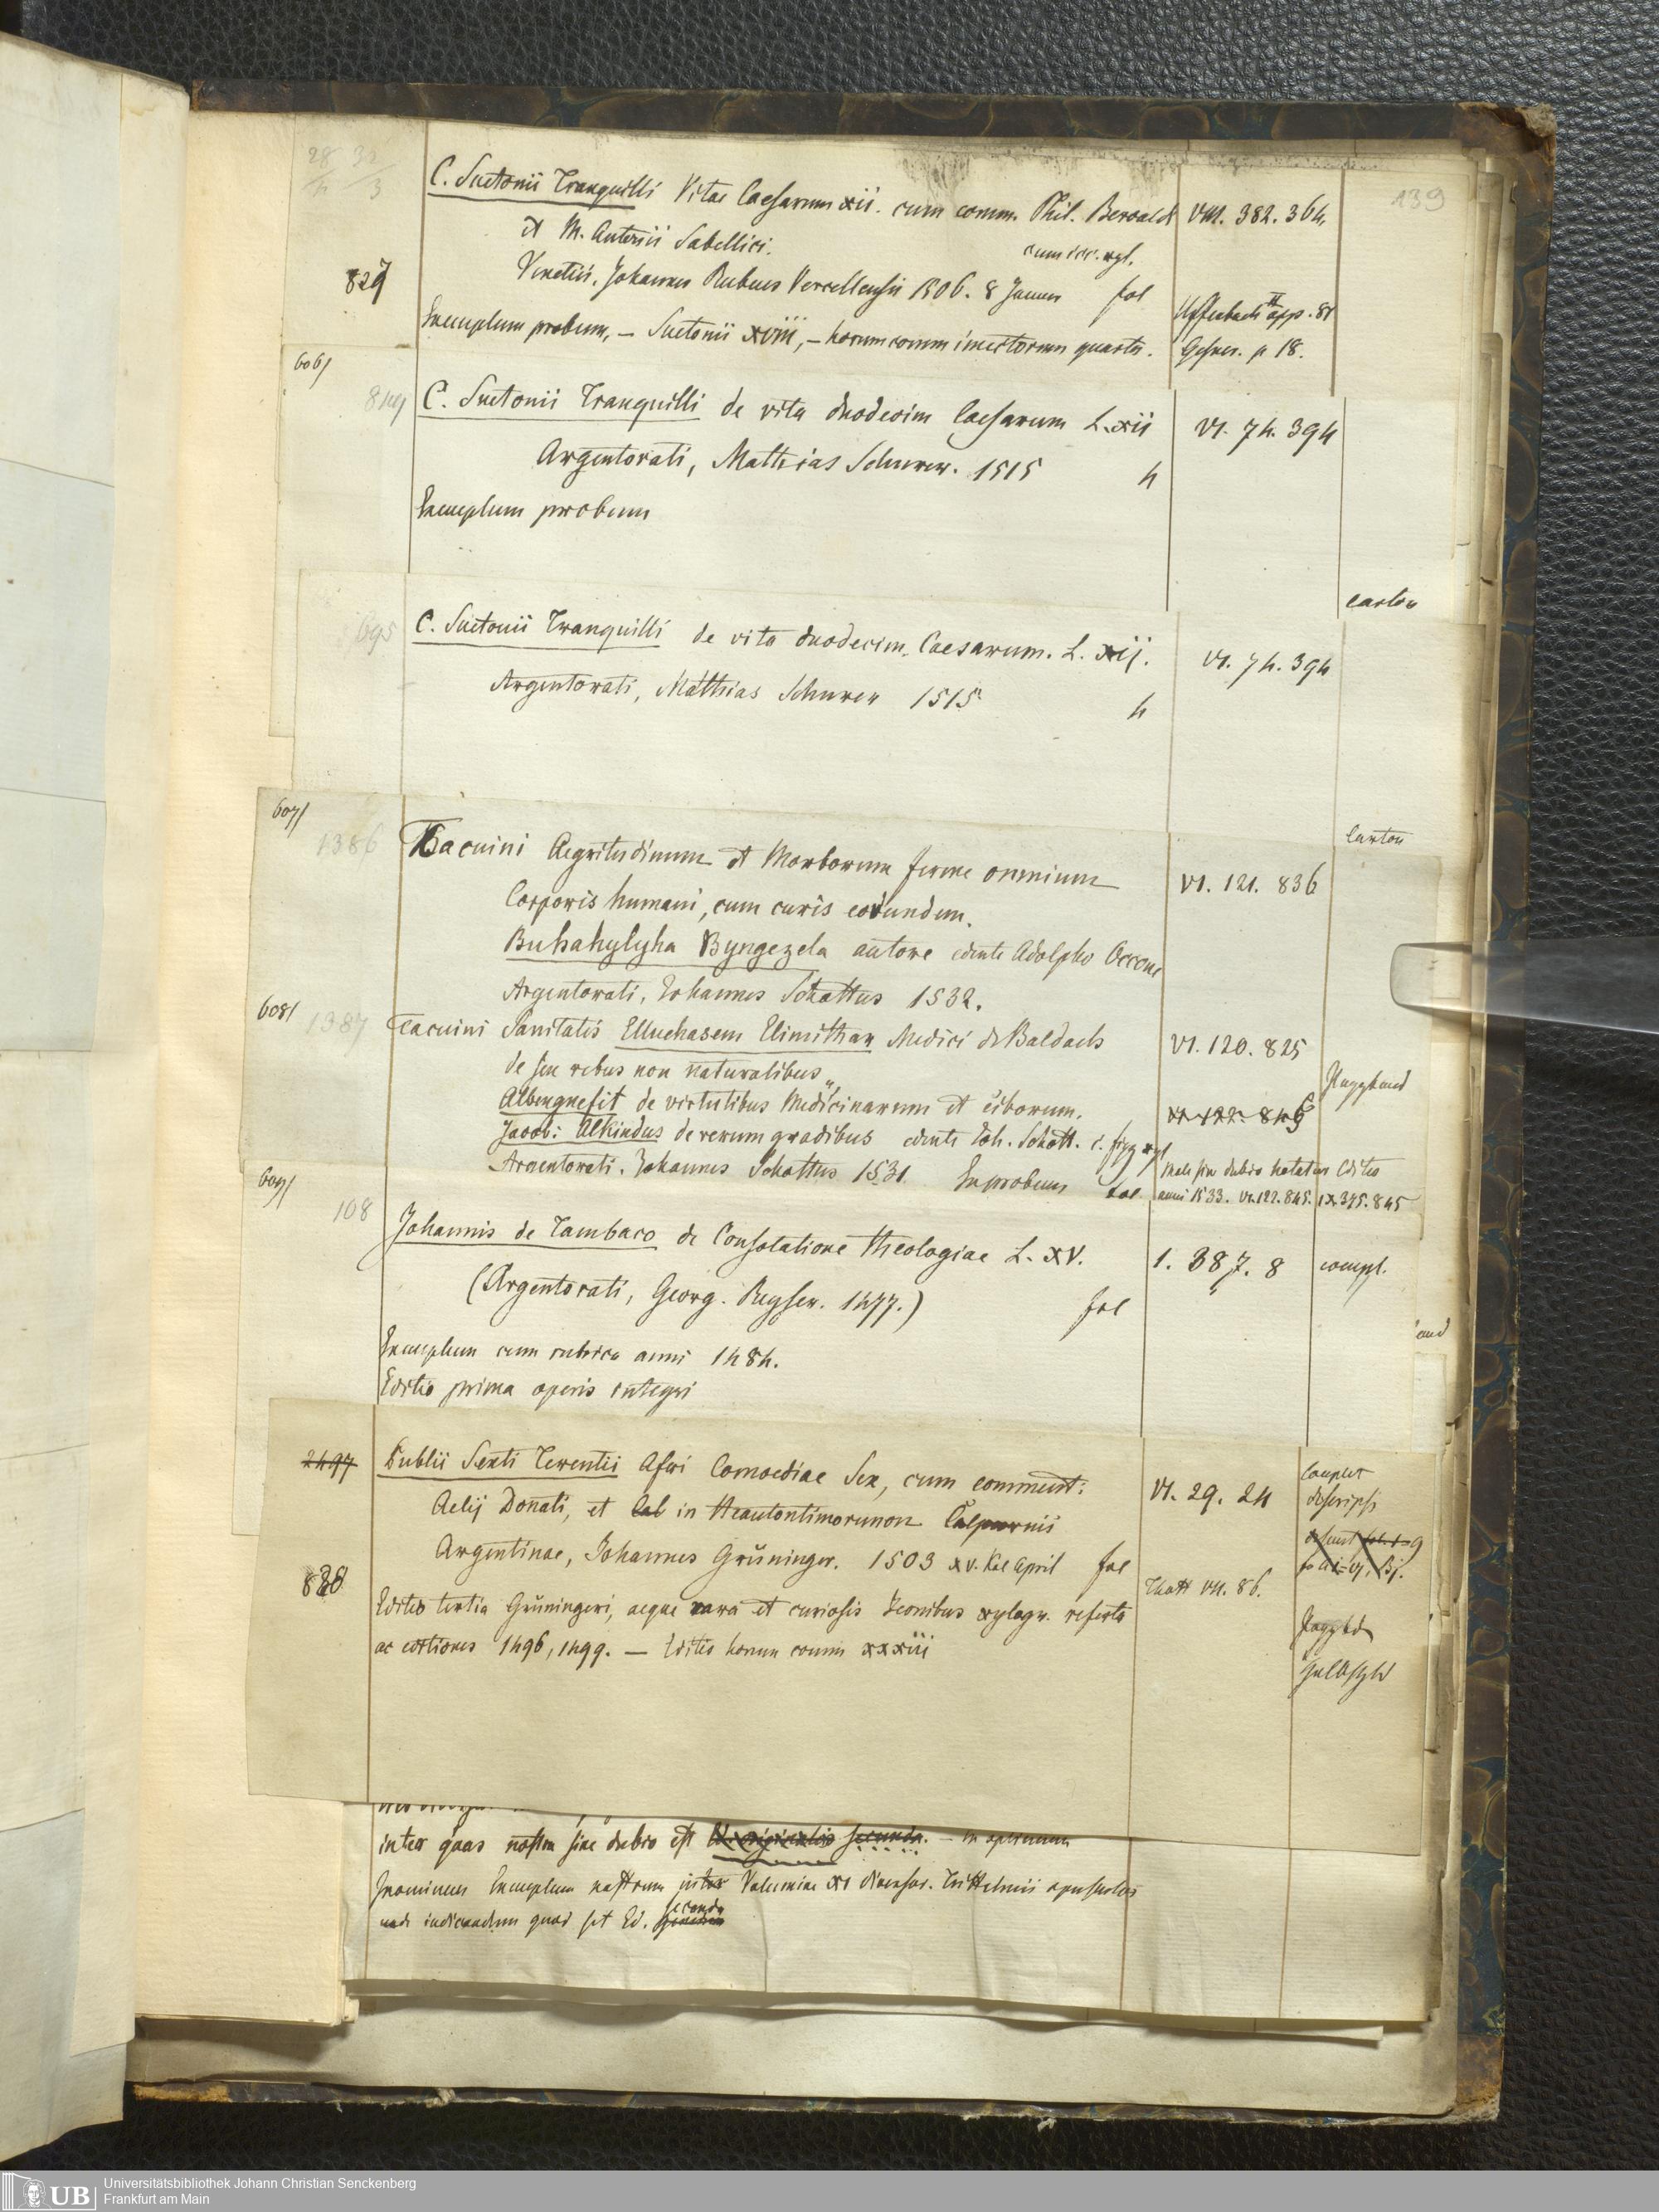 28/4 32/3
139
C. Suetonii Tranquilli Vitae Caesarum xii. cum comm. Phil. Beroaldi VIII. 382. 364.
et M. Antonii Sabellici.
cum icc. xyl.
829 Venetiis, Johannes Rubeus Vercellensis 1506. 8 Januar fol
Uffenbach II app. 81
Exemplum probum, — Suetonii xviii, — horum comm
Gesner. p 18.
606/
849 C. Suetonii Tranquilli de vita duodecim Caesarum L. xii VI. 74. 394
Argentorati, Mathias Schurer. 1515 4
Exemplum probum
carton
695 C. Suetonii Tranquilli de vita duodecim Caesarum. L. xij. VI. 74. 394
Argentorati, Matthias Schurer 1515 4
607/
carton
1386 Tacuini Aegritudinum et Morborum ferme omnium VI. 121. 836
Corporis humani, cum curis eorundem.
Buhahylyha Byngezela autore edente Adolpho Occone
Argentorati, Johannes Schottus 1532.
608/
1387 Tacuini Sanitatis Elluchasem Elimithar Medici de Baldach VI. 120. 825
de sex rebus non naturalibus,
Albengnefit de virtutibus Medicinarum et ciborum.
Jacob: Alkindus de rerum gradibus edente Joh. Schott. c. figg xyl
Argentorati. Johannes Schottus 1531. fol
Male sine dubio notatur Editio
anni 1533. VI. 122. 845. IX. 375. 845
609/
108 Johannis de Tambaco de Consolatione theologiae L. xv. 1. 387. 8 compl.
(Argentorati, Georg. Reyser. 1477.) fol
Exemplum cum rubrica anni 1484.
Editio prima operis integri
2497 Publii Sexti Terentii Afri Comoediae Sex, cum comment: VI. 29. 24
Complet
descripsi
Aelij Donati, et in Heautontimorumon Calpurnii
Argentinae, Johannes Grüninger. 1503 xv. Kal April fol
830
Thott VII. 86.
Editio tertia Grüningeri, aeque rara et curiosis Iconibus xylogr. referta
ac editiones 1496, 1499. — Editio horum comm xxxiii
inter quas nostra sine dubio est Ed. originalis secunda. —
Exemplum nostrum inter Volumine XI diversor. Trithemii opuscula
unde iudicandum quod sit Ed. secunda
UB Universitätsbibliothek Johann Christian Senckenberg
Frankfurt am Main